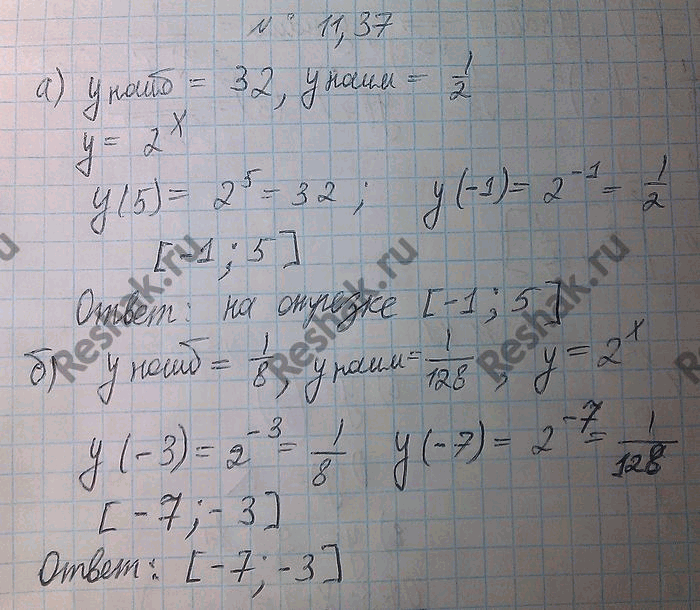 № 11,37
а) y наиб = 32, y наим = 1/2
y = 2^x
y(5) = 2^5 = 32 ; y(-1) = 2^-1 = 1/2
[-1 ; 5]
Ответ: на отрезке [-1 ; 5]
б) y наиб = 1/8, y наим = 1/128, y = 2^x
y(-3) = 2^-3 = 1/8 y(-7) = 2^-7 = 1/128
[-7 ; -3]
Ответ: [-7 ; -3]
Reshak.ru
Reshak.ru
Reshak.ru